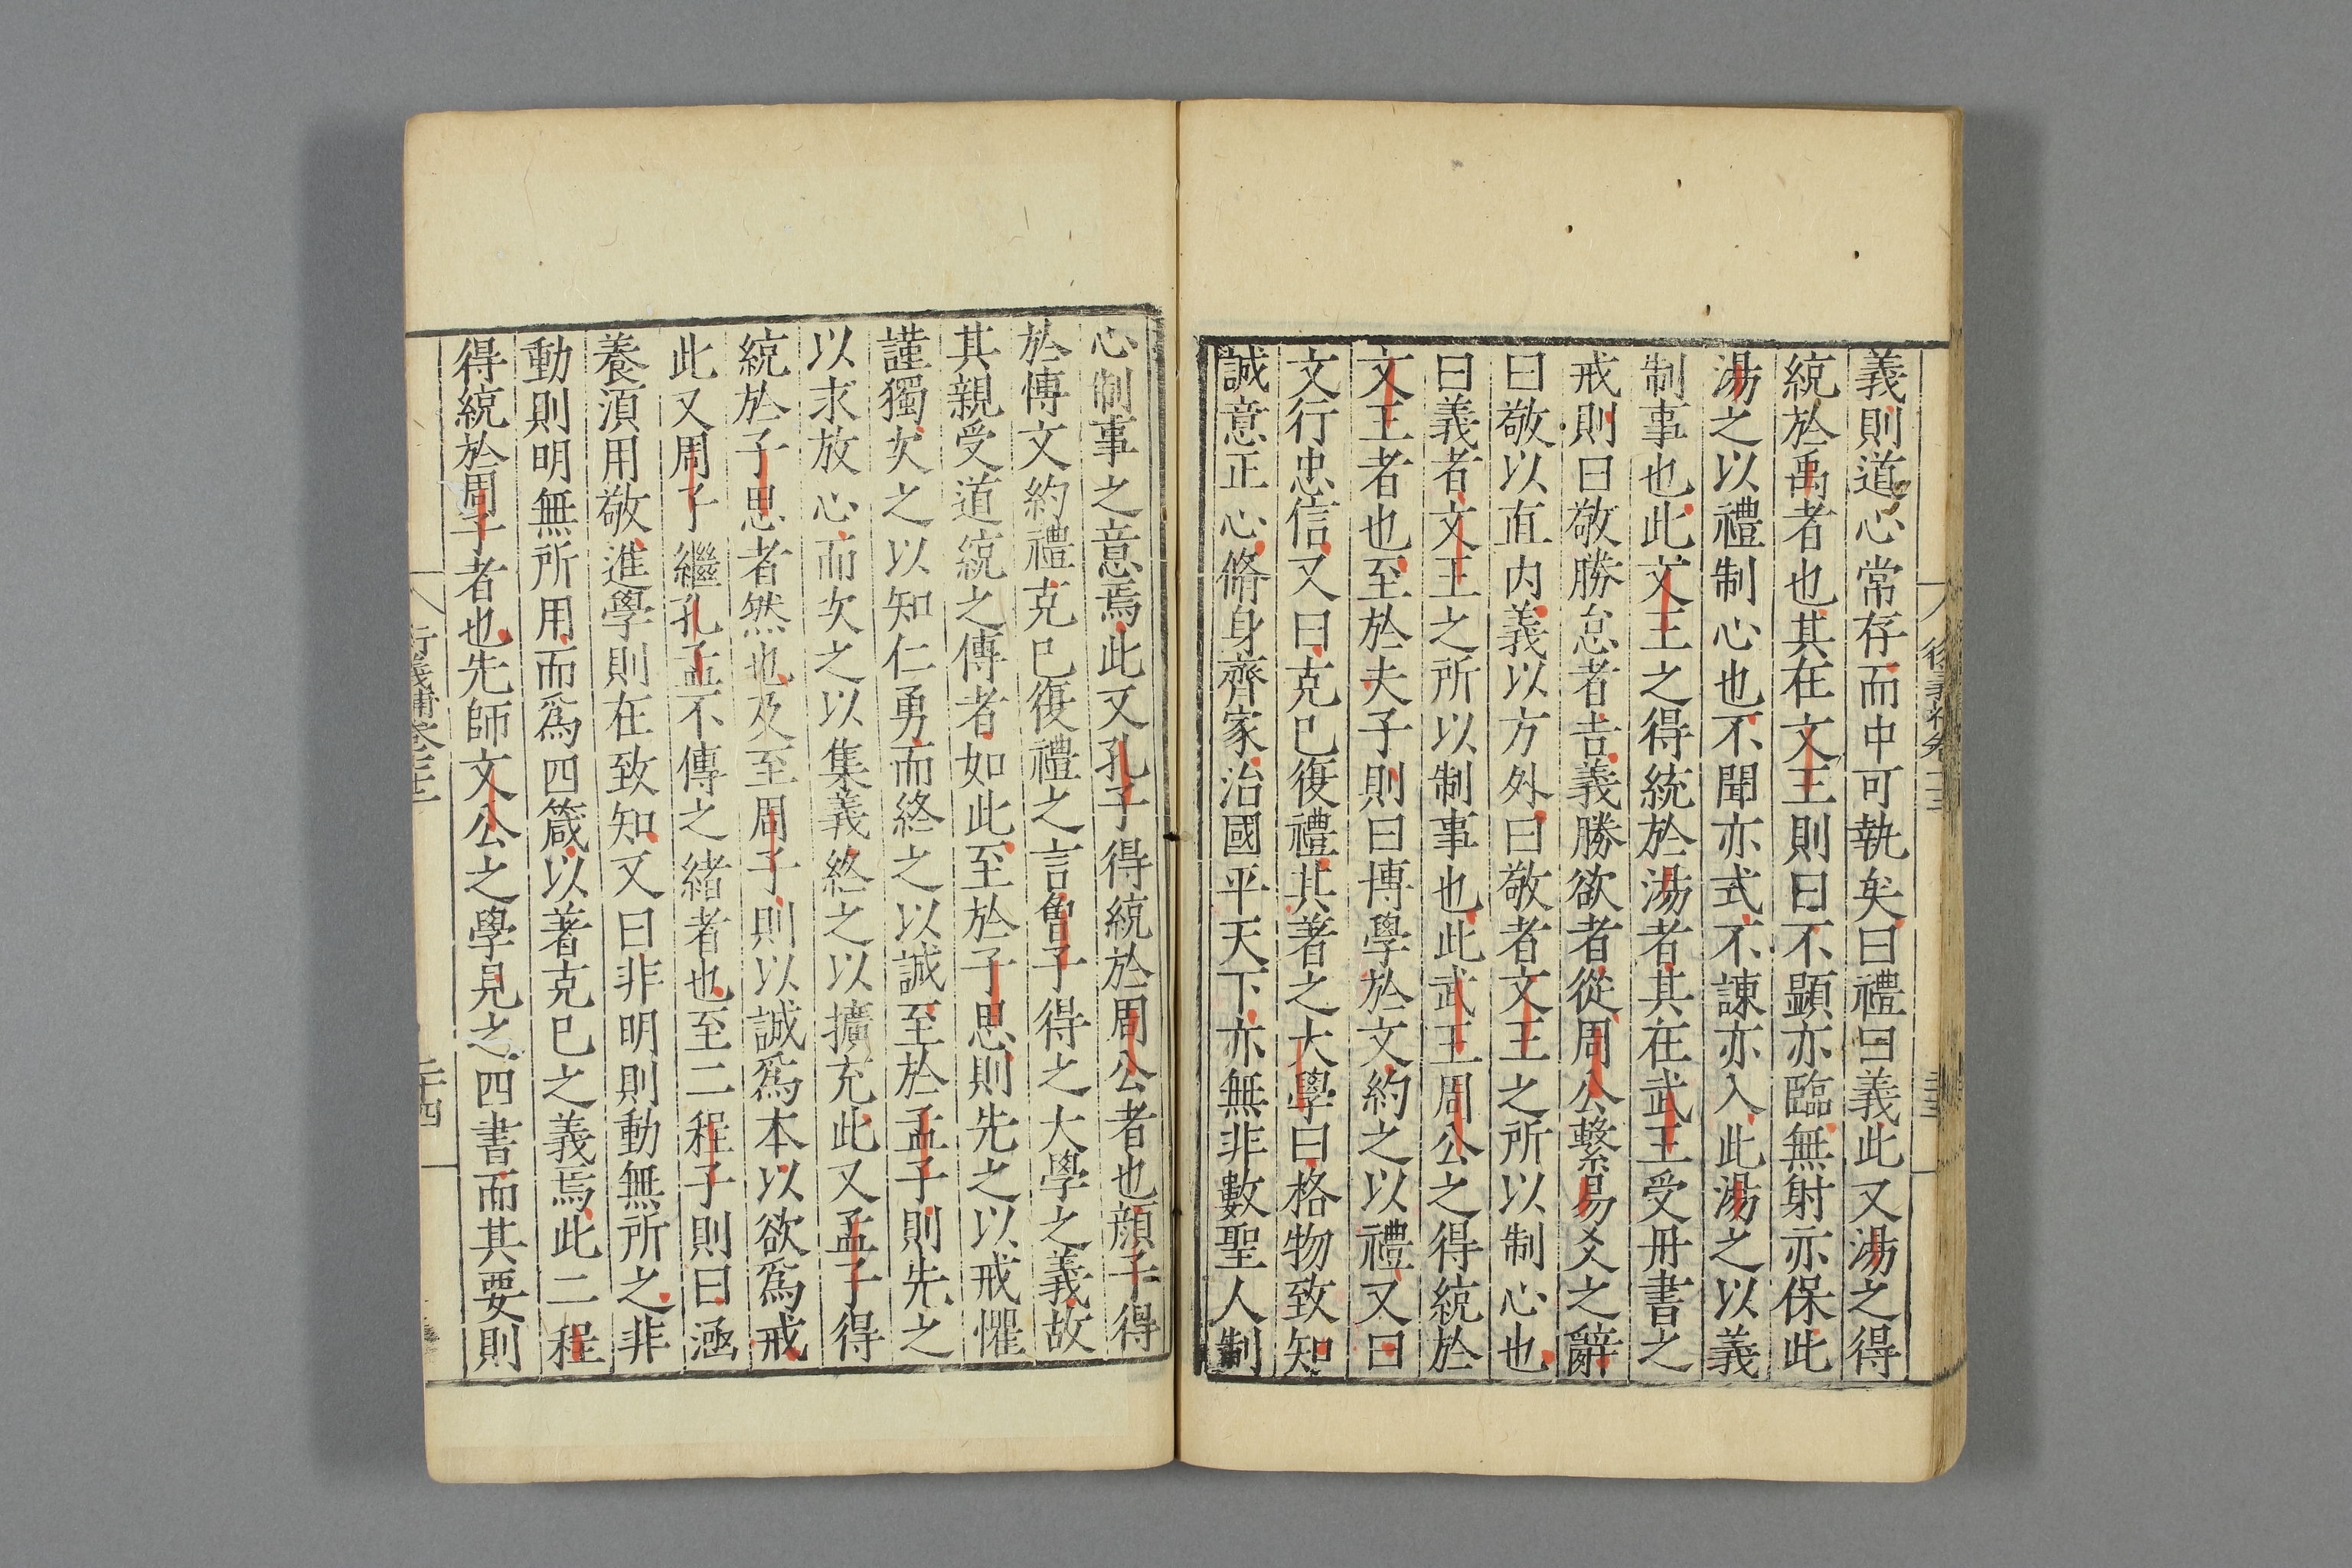 義則道心常存而中可執矣曰禮曰義此又湯之得
統於禹者也其在文王則曰不顯亦臨無射亦保此
湯之以禮制心也不聞亦式不諫亦入此湯之以義
制事也此文王之得統於湯者其在武王受冊書之
戒則曰敬勝怠者吉義勝欲者從周公繫易爻之辭
曰敬以直内義以方外曰敬者文王之所以制心也
曰義者文王之所以制事也此武王周公之得統於
文王者也至於夫子則曰博學於文約之以禮又曰
文行忠信又曰克已復禮其著之大學曰格物致知
誠意正心脩身齊家治國平天下亦無非數聖人制
心制事之意焉此又孔子得統於周公者也顔子得
於博文約禮克已復禮之言曾子得之大學之義故
其親受道統之傳者如此至於子思則先之以戒懼
謹獨次之以知仁勇而終之以誠至於孟子則先之
以求放心而次之以集義終之以擴充此又孟子得
統於子思者然也及至周子則以誠爲本以欲爲戒
此又周子繼孔孟不傳之緒者也至二程子則曰涵
養湏用敬進學則在致知又曰非明則動無所之非
動則明無所用而爲四箴以著克已之義焉此二程
得統於周子者也先師文公之學見之四書而其要則
衍義補卷三十二
三十四